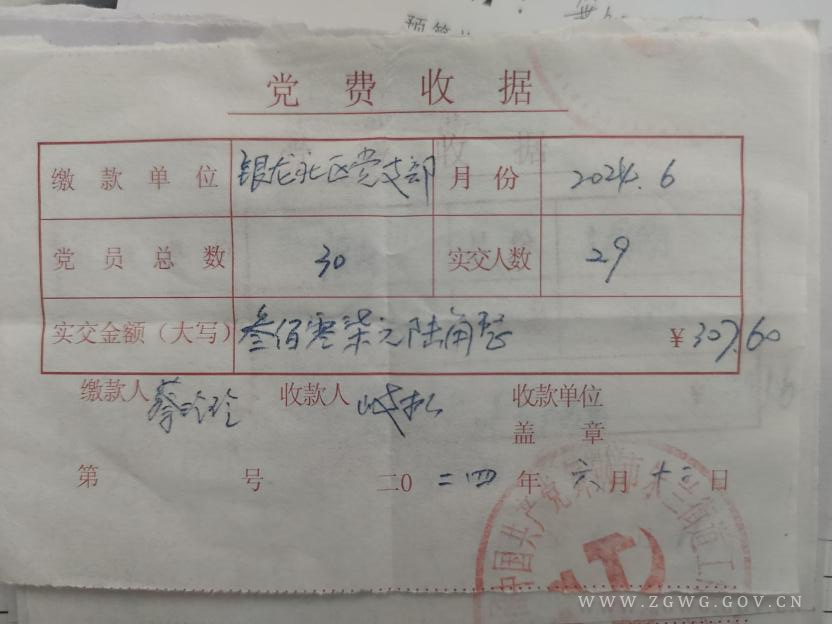 党费收据
缴款单位 银龙北区党支部 月份 2024.6
党员总数 30 实交人数 29
实交金额（大写） 叁佰零柒元陆角整 ¥307.60
缴款人 蔡玲玲 收款人 收款单位
盖章
第 号 二0二四年六月十三日
中国共产党 街道工
WWW.ZGWG.GOV.CN